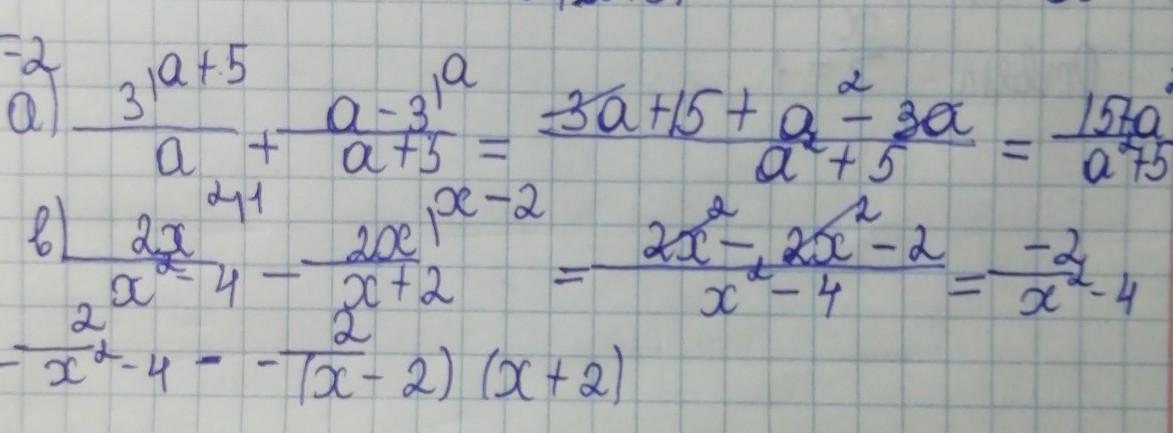 -2
а) 3^{|a+5}/a + a-3^{|a}/a+5 = 3a+15+a²-3a/a²+5 = 15+a²/a²+5
в) 2x²^{|1}/x²-4 - 2x^{|x-2}/x+2 = 2x²-2x²-2/x²-4 = -2/x²-4
-2/x²-4 - -2/(x-2)(x+2)